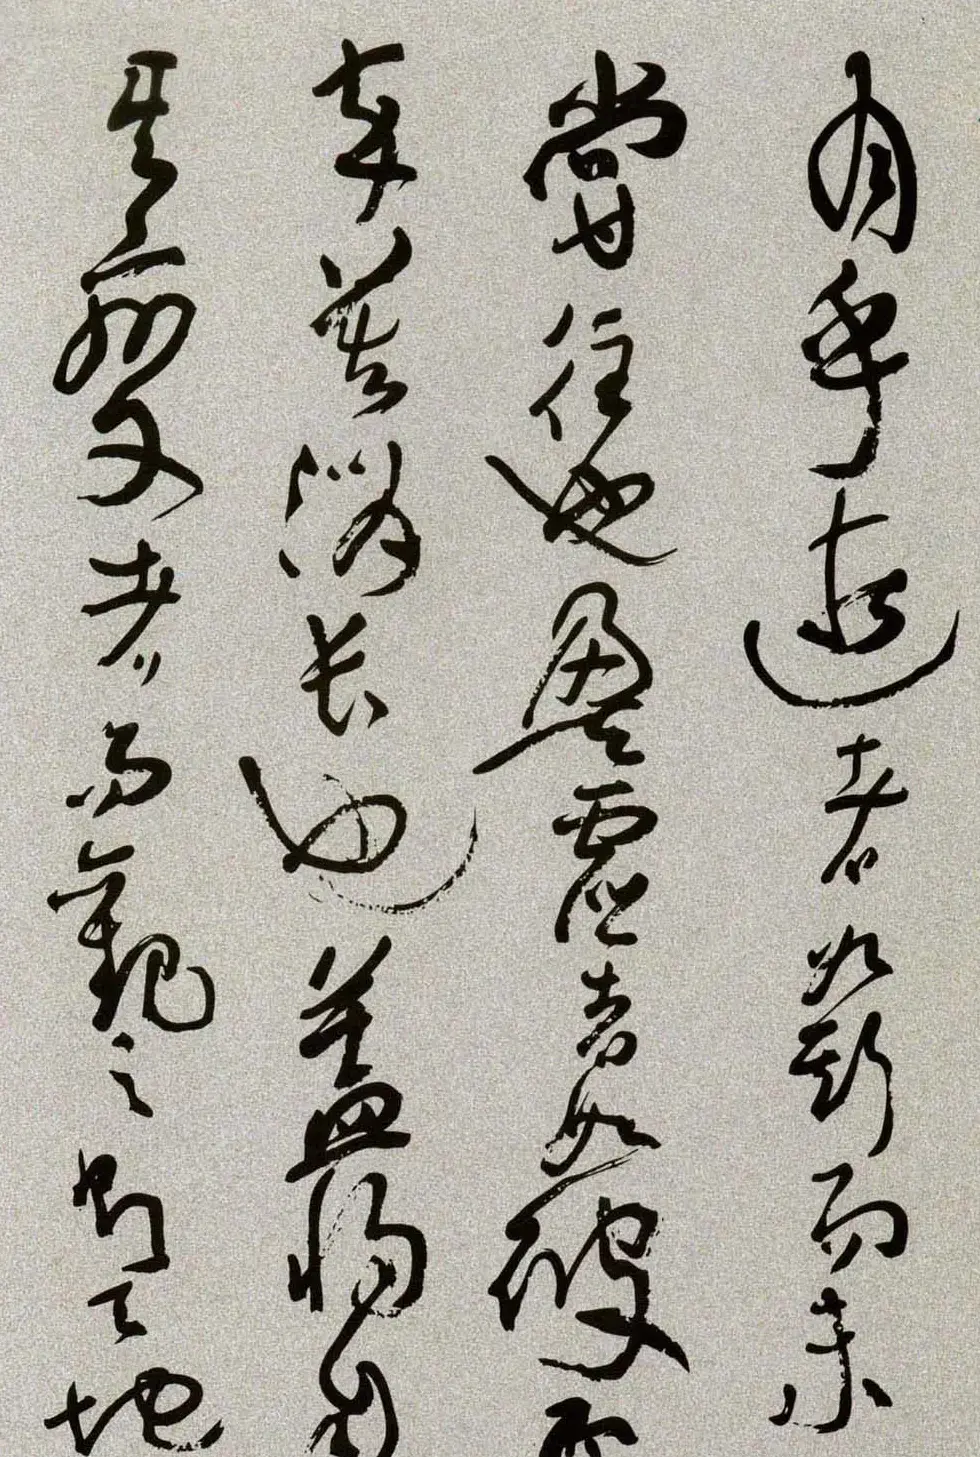 月乎逝者如斯而未
嘗往也盈虛者如彼而
卒莫消長也蓋將自
其變者而觀之則天地